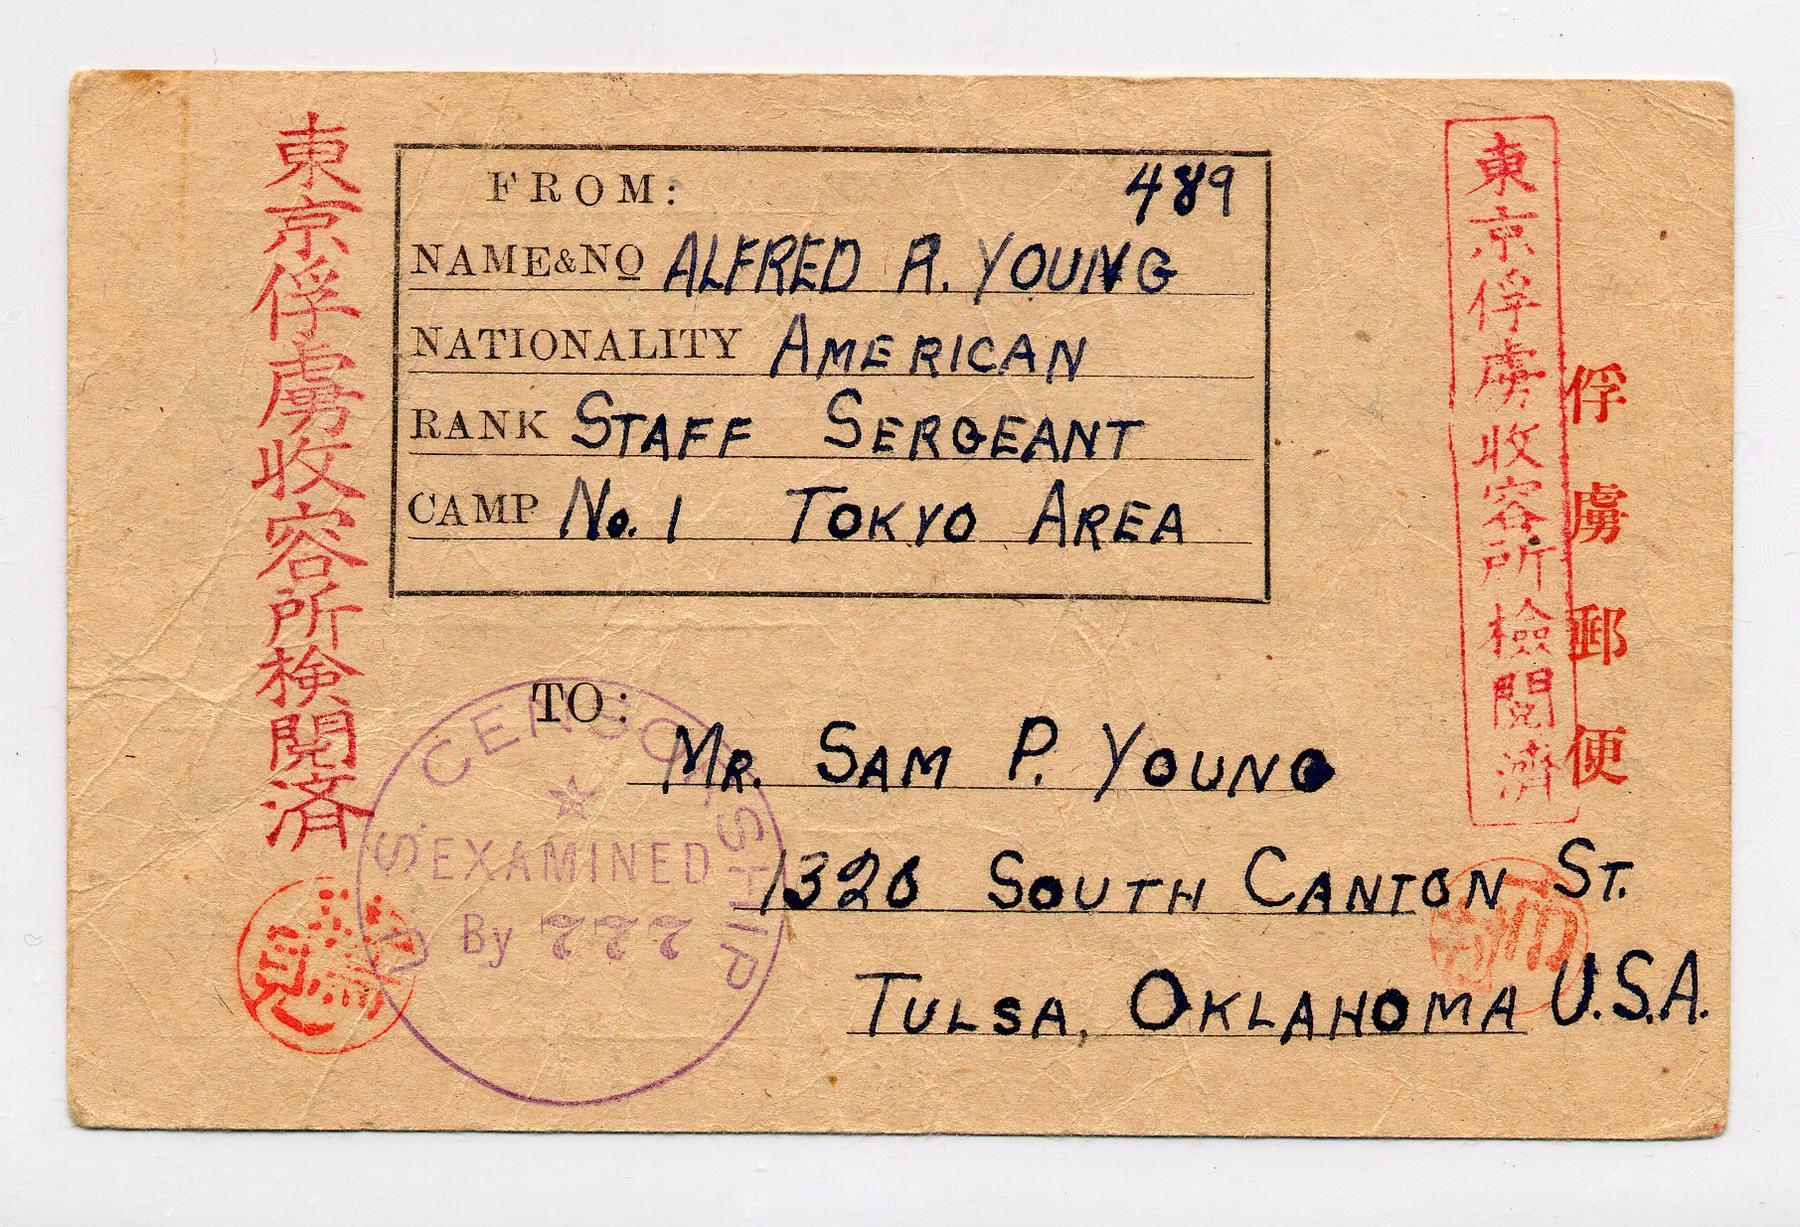 東京俘虜収容所検閲済
FROM:
489
NAME&NO ALFRED R. YOUNG
NATIONALITY AMERICAN
RANK STAFF SERGEANT
CAMP No. 1 TOKYO AREA
東京俘虜收容所檢閲濟
俘虜郵便
TO:
MR. SAM P. YOUNG
1320 SOUTH CANTON ST.
TULSA, OKLAHOMA U.S.A.
U.S. CENSORSHIP
EXAMINED
By 777